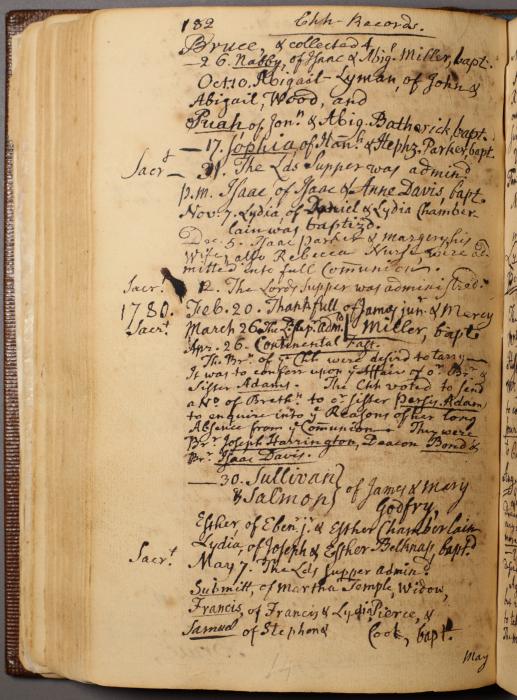 132 Chh-Records.
Bruce, & collected 4
-26. Nabby, of Isaac & Abigl. Miller, bapt.
Oct. 10. Abigail-Lyman, of John &
Abigail, Wood, and
Puah of Jonn. & Abig. Batherick, bapt.
-17. Sophia, of Hanh. & Hephz. Parker, bapt.
Sacrt. - 31. The Lds Supper was admind
p.m. Isaac of Isaac & Anne Davis, bapt.
Nov. 7. Lydia, of Daniel & Lydia Chamber-
lain was baptizd.
Dec. 5. Isaac Parker & Margery his
Wife, also Rebecca Nurse were ad
mitted into full Comunion.
Sacr. 12. The Lords Supper was administred.
1780. Feb. 20. Thankfull of James junr & Mercy
Sacrt. March 26 The Ls Sup. admd. Miller, bapt
Apr. 26. Continental Fast.
The Brn. of ye Chh were desird to tarry—
It was to conferr upon ye Affair of or Br. &
Sister Adams. The Chh voted to send
a No. of Brethn to or sister Persis Adams
to enquire into ye Reasons of her long
Absence from ye Comunion — They were
Br. Joseph Harrington, Deacon Bond &
Br. Isaac Davis.
-30. Sullivan } of James & Mary
& Salmon } Godfry,
Esther of Eben. jr. & Esther Chamberlain
Lydia, of Joseph & Esther Belknap, baptd
Sacrt. May 7. The Lds Supper admind.
Submitt, of Martha Temple, Widow,
Francis, of Francis & Lydia Pierce, &
Samuel of Stephen & Cook, bapt.
May